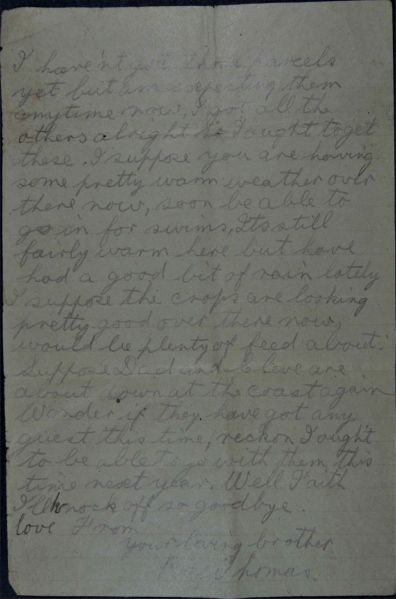 I haven't got some parcels
yet but am expecting them
anytime now, I got all the
others alright so I ought to get
these. I suppose you are having
some pretty warm weather over
there now, soon be able to
go in for swims, Its still
fairly warm here but have
had a good bit of rain lately
I suppose the crops are looking
pretty good over there now,
would be plenty of feed about.
Suppose Dad and are
about down at the coast again
Wonder if they have got any
guest this time, reckon I ought
to be able to go with them this
time next year. Well Faith
I'll knock off so goodbye.
love From
your loving brother
Thomas.